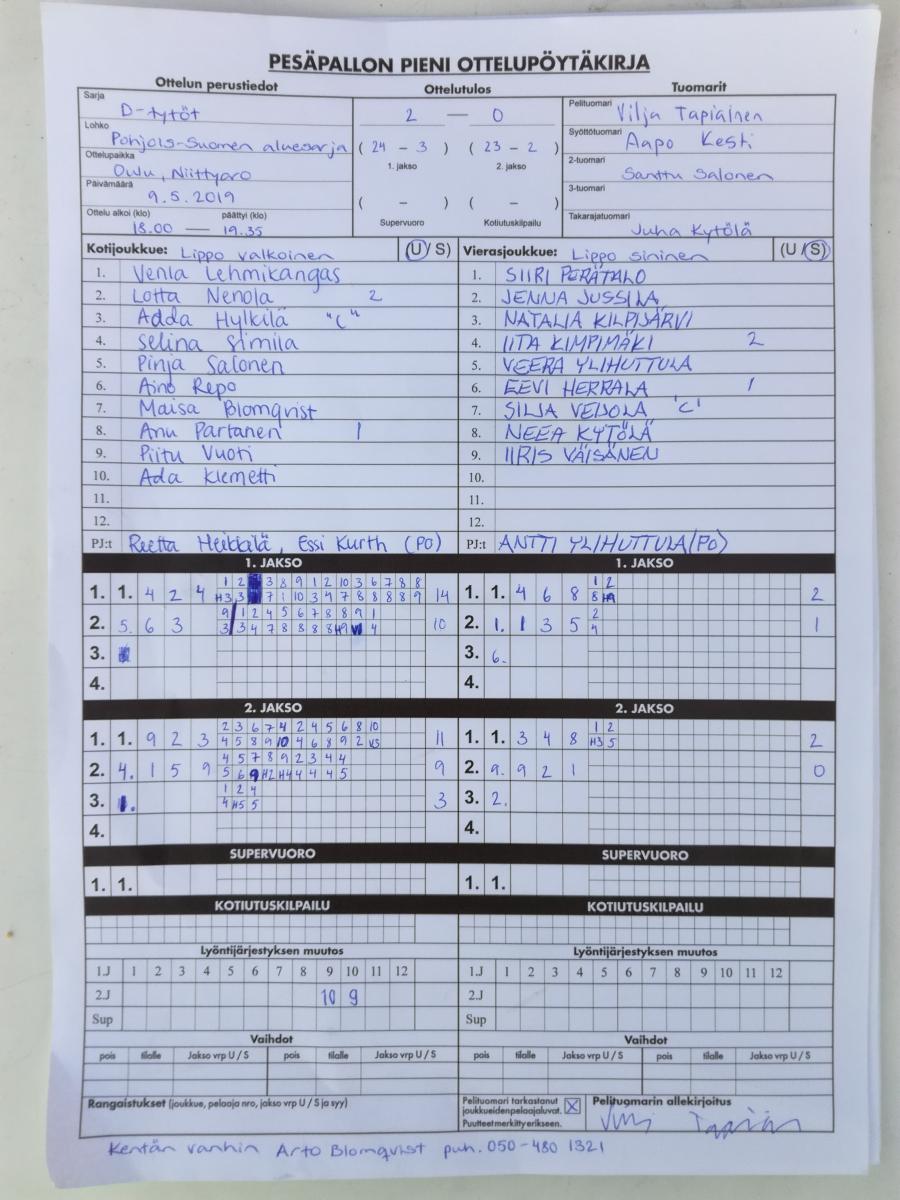 PESÄPALLON PIENI OTTELUPÖYTÄKIRJA
Ottelun perustiedot Ottelutulos Tuomarit
Sarja D-tytöt
Lohko Pohjois-Suomen aluesarja
Ottelupaikka Oulu, Niittyaro
Päivämäärä 9.5.2019
Ottelu alkoi (klo) päättyi (klo)
18.00 — 19.35
2 — 0
( 24 - 3 ) ( 23 - 2 )
1. jakso 2. jakso
( - ) ( - )
Supervuoro Kotiutuskilpailu
Pelituomari Vilja Tapiainen
Syöttötuomari Aapo Kesti
2-tuomari Santtu Salonen
3-tuomari
Takarajatuomari Juha Kytölä
Kotijoukkue: Lippo valkoinen (U / S)
1. Venla Lehmikangas
2. Lotta Nenola 2
3. Adda Hylkilä "C"
4. Selina Simila
5. Pinja Salonen
6. Aino Repo
7. Maisa Blomqvist
8. Anu Partanen 1
9. Piitu Vuoti
10. Ada Klemetti
11.
12.
PJ:t Reetta Heikkilä, Essi Kurth (PO)
Vierasjoukkue: Lippo sininen (U / S)
1. SIIRI PERÄTALO
2. JENNA JUSSILA
3. NATALIA KILPIJÄRVI
4. IITA KIMPIMÄKI 2
5. VEERA YLIHUTTULA
6. EEVI HERRALA 1
7. SILJA VEIJOLA 'C'
8. NEEA KYTÖLÄ
9. IIRIS VÄISÄNEN
10.
11.
12.
PJ:t ANTTI YLIHUTTULA (PO)
1. JAKSO
1. 1. 4 2 4 14
1 2 3 8 9 1 2 10 3 6 7 8 8
H3 3 7 1 10 3 4 7 8 8 8 8 9
2. 5. 6 3 10
9 1 2 4 5 6 7 8 8 9 1
3 3 4 7 8 8 8 8 H9 4
3.
4.
1. JAKSO
1. 1. 4 6 8 2
1 2
8
2. 1. 1 3 5 1
2
4
3. 6.
4.
2. JAKSO
1. 1. 9 2 3 11
2 3 6 7 4 2 4 5 6 8 10
4 5 8 9 10 4 6 8 9 2
2. 4. 1 5 9 9
4 5 7 8 9 2 3 4 4
5 6 9 H2 H4 4 4 4 5
3. 1. 3
1 2 4
4 H5 5
4.
2. JAKSO
1. 1. 3 4 8 2
1 2
H3 5
2. 9. 9 2 1 0
3. 2.
4.
SUPERVUORO SUPERVUORO
1. 1. 1. 1.
KOTIUTUSKILPAILU KOTIUTUSKILPAILU
Lyöntijärjestyksen muutos Lyöntijärjestyksen muutos
1.J 1 2 3 4 5 6 7 8 9 10 11 12 1.J 1 2 3 4 5 6 7 8 9 10 11 12
2.J 10 9 2.J
Sup Sup
Vaihdot Vaihdot
pois tilalle Jakso vrp U / S pois tilalle Jakso vrp U / S pois tilalle Jakso vrp U / S pois tilalle Jakso vrp U / S
Rangaistukset (joukkue, pelaaja nro, jakso vrp U / S ja syy)
Pelituomari tarkastanut
joukkueiden pelaajaluvat. X
Puutteet merkitty erikseen.
Pelituomarin allekirjoitus
Kentän vanhin Arto Blomqvist puh. 050-480 1321